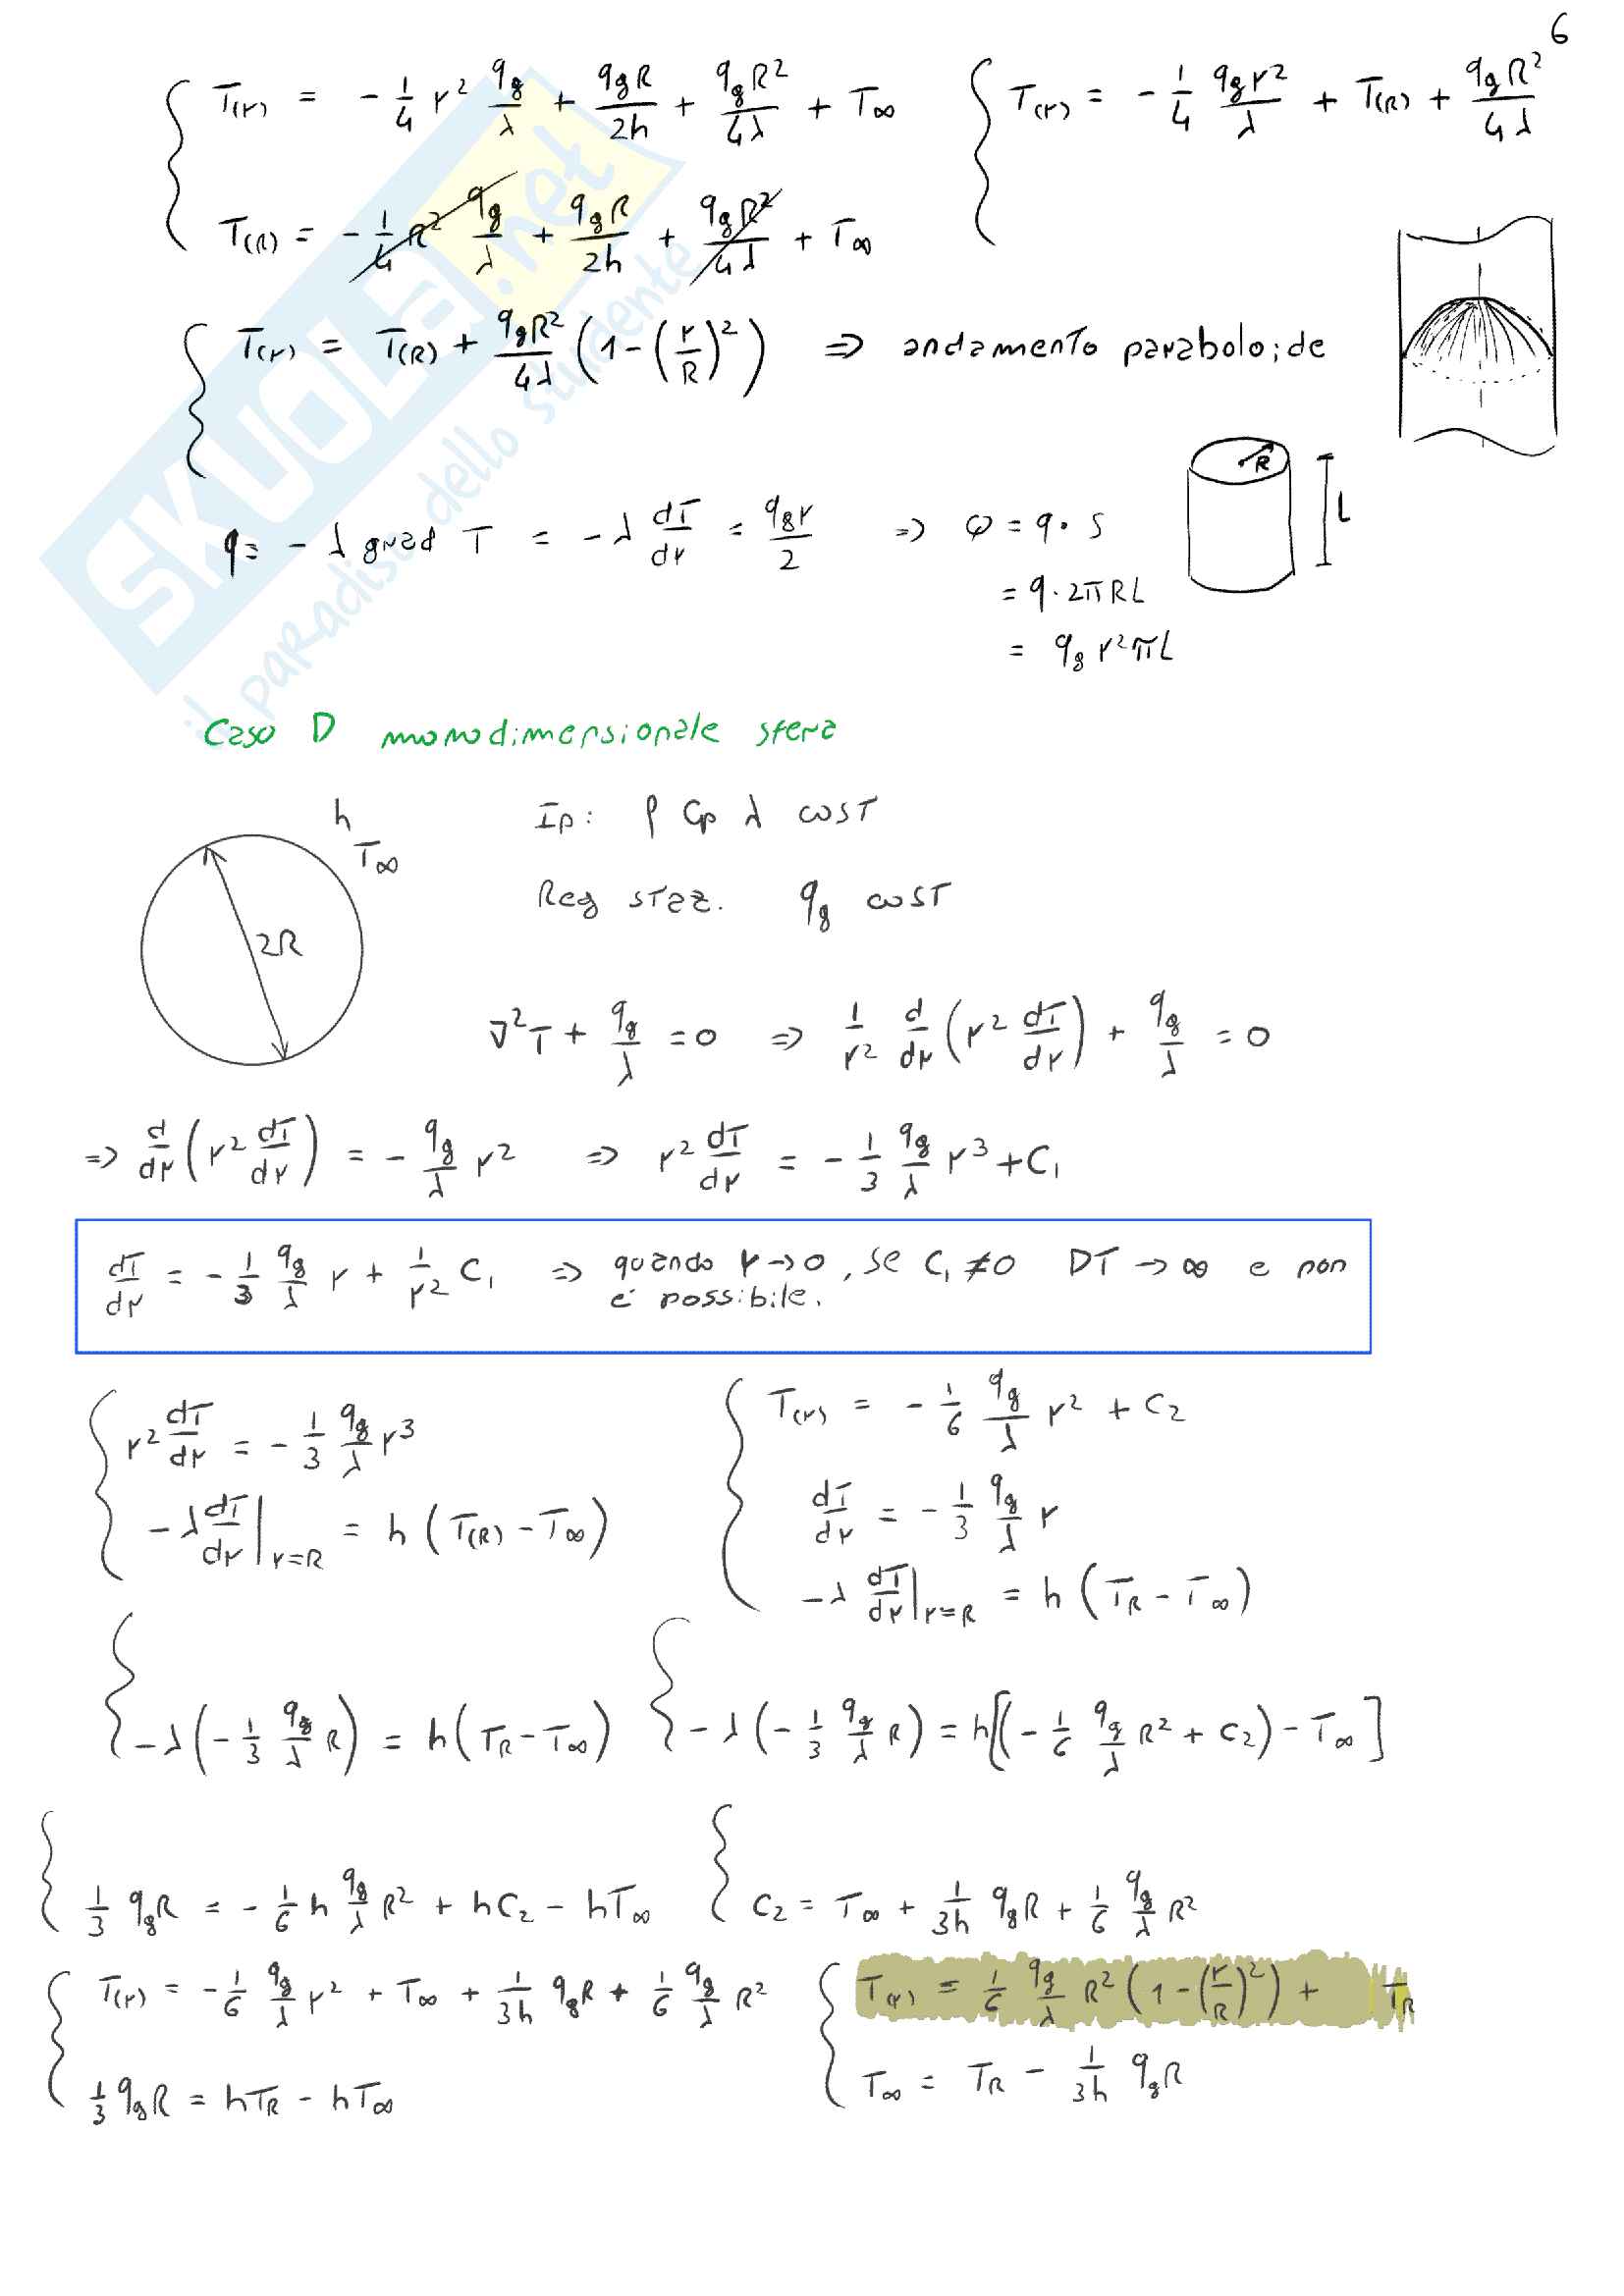 6
T(r) = - 1/4 r² qg/λ + qgR/2h + qgR²/4λ + T∞
T(r) = - 1/4 qgr²/λ + T(R) + qgR²/4λ
T(R) = - 1/4 R² qg/λ + qgR/2h + qgR²/4λ + T∞
T(r) = T(R) + qgR²/4λ (1-(r/R)²) ⇒ andamento paraboloide
R
L
q = - λ grad T = - λ dT/dr = qgr/2 ⇒ φ = q · S
= q · 2πRL
= qg r²πL
SKUOLa.net
il paradiso dello studente
Caso D monodimensionale sfera
h
T∞
2R
Ip: ρ Cp λ cosT
Reg staz. qg cosT
∇²T + qg/λ = 0 ⇒ 1/r² d/dr (r² dT/dr) + qg/λ = 0
⇒ d/dr (r² dT/dr) = - qg/λ r² ⇒ r² dT/dr = - 1/3 qg/λ r³ + C₁
dT/dr = - 1/3 qg/λ r + 1/r² C₁ ⇒ quando r → 0, se C₁ ≠ 0 DT → ∞ e non
é possibile.
r² dT/dr = - 1/3 qg/λ r³
- λ dT/dr |r=R = h (T(R) - T∞)
T(r) = - 1/6 qg/λ r² + C₂
dT/dr = - 1/3 qg/λ r
- λ dT/dr |r=R = h (TR - T∞)
- λ (- 1/3 qg/λ R) = h (TR - T∞)
- λ (- 1/3 qg/λ R) = h [(- 1/6 qg/λ R² + C₂) - T∞]
1/3 qgR = - 1/6 h qg/λ R² + hC₂ - hT∞
C₂ = T∞ + 1/3h qgR + 1/6 qg/λ R²
T(r) = - 1/6 qg/λ r² + T∞ + 1/3h qgR + 1/6 qg/λ R²
T(r) = 1/6 qg/λ R² (1-(r/R)²) + TR
1/3 qgR = hTR - hT∞
T∞ = TR - 1/3h qgR